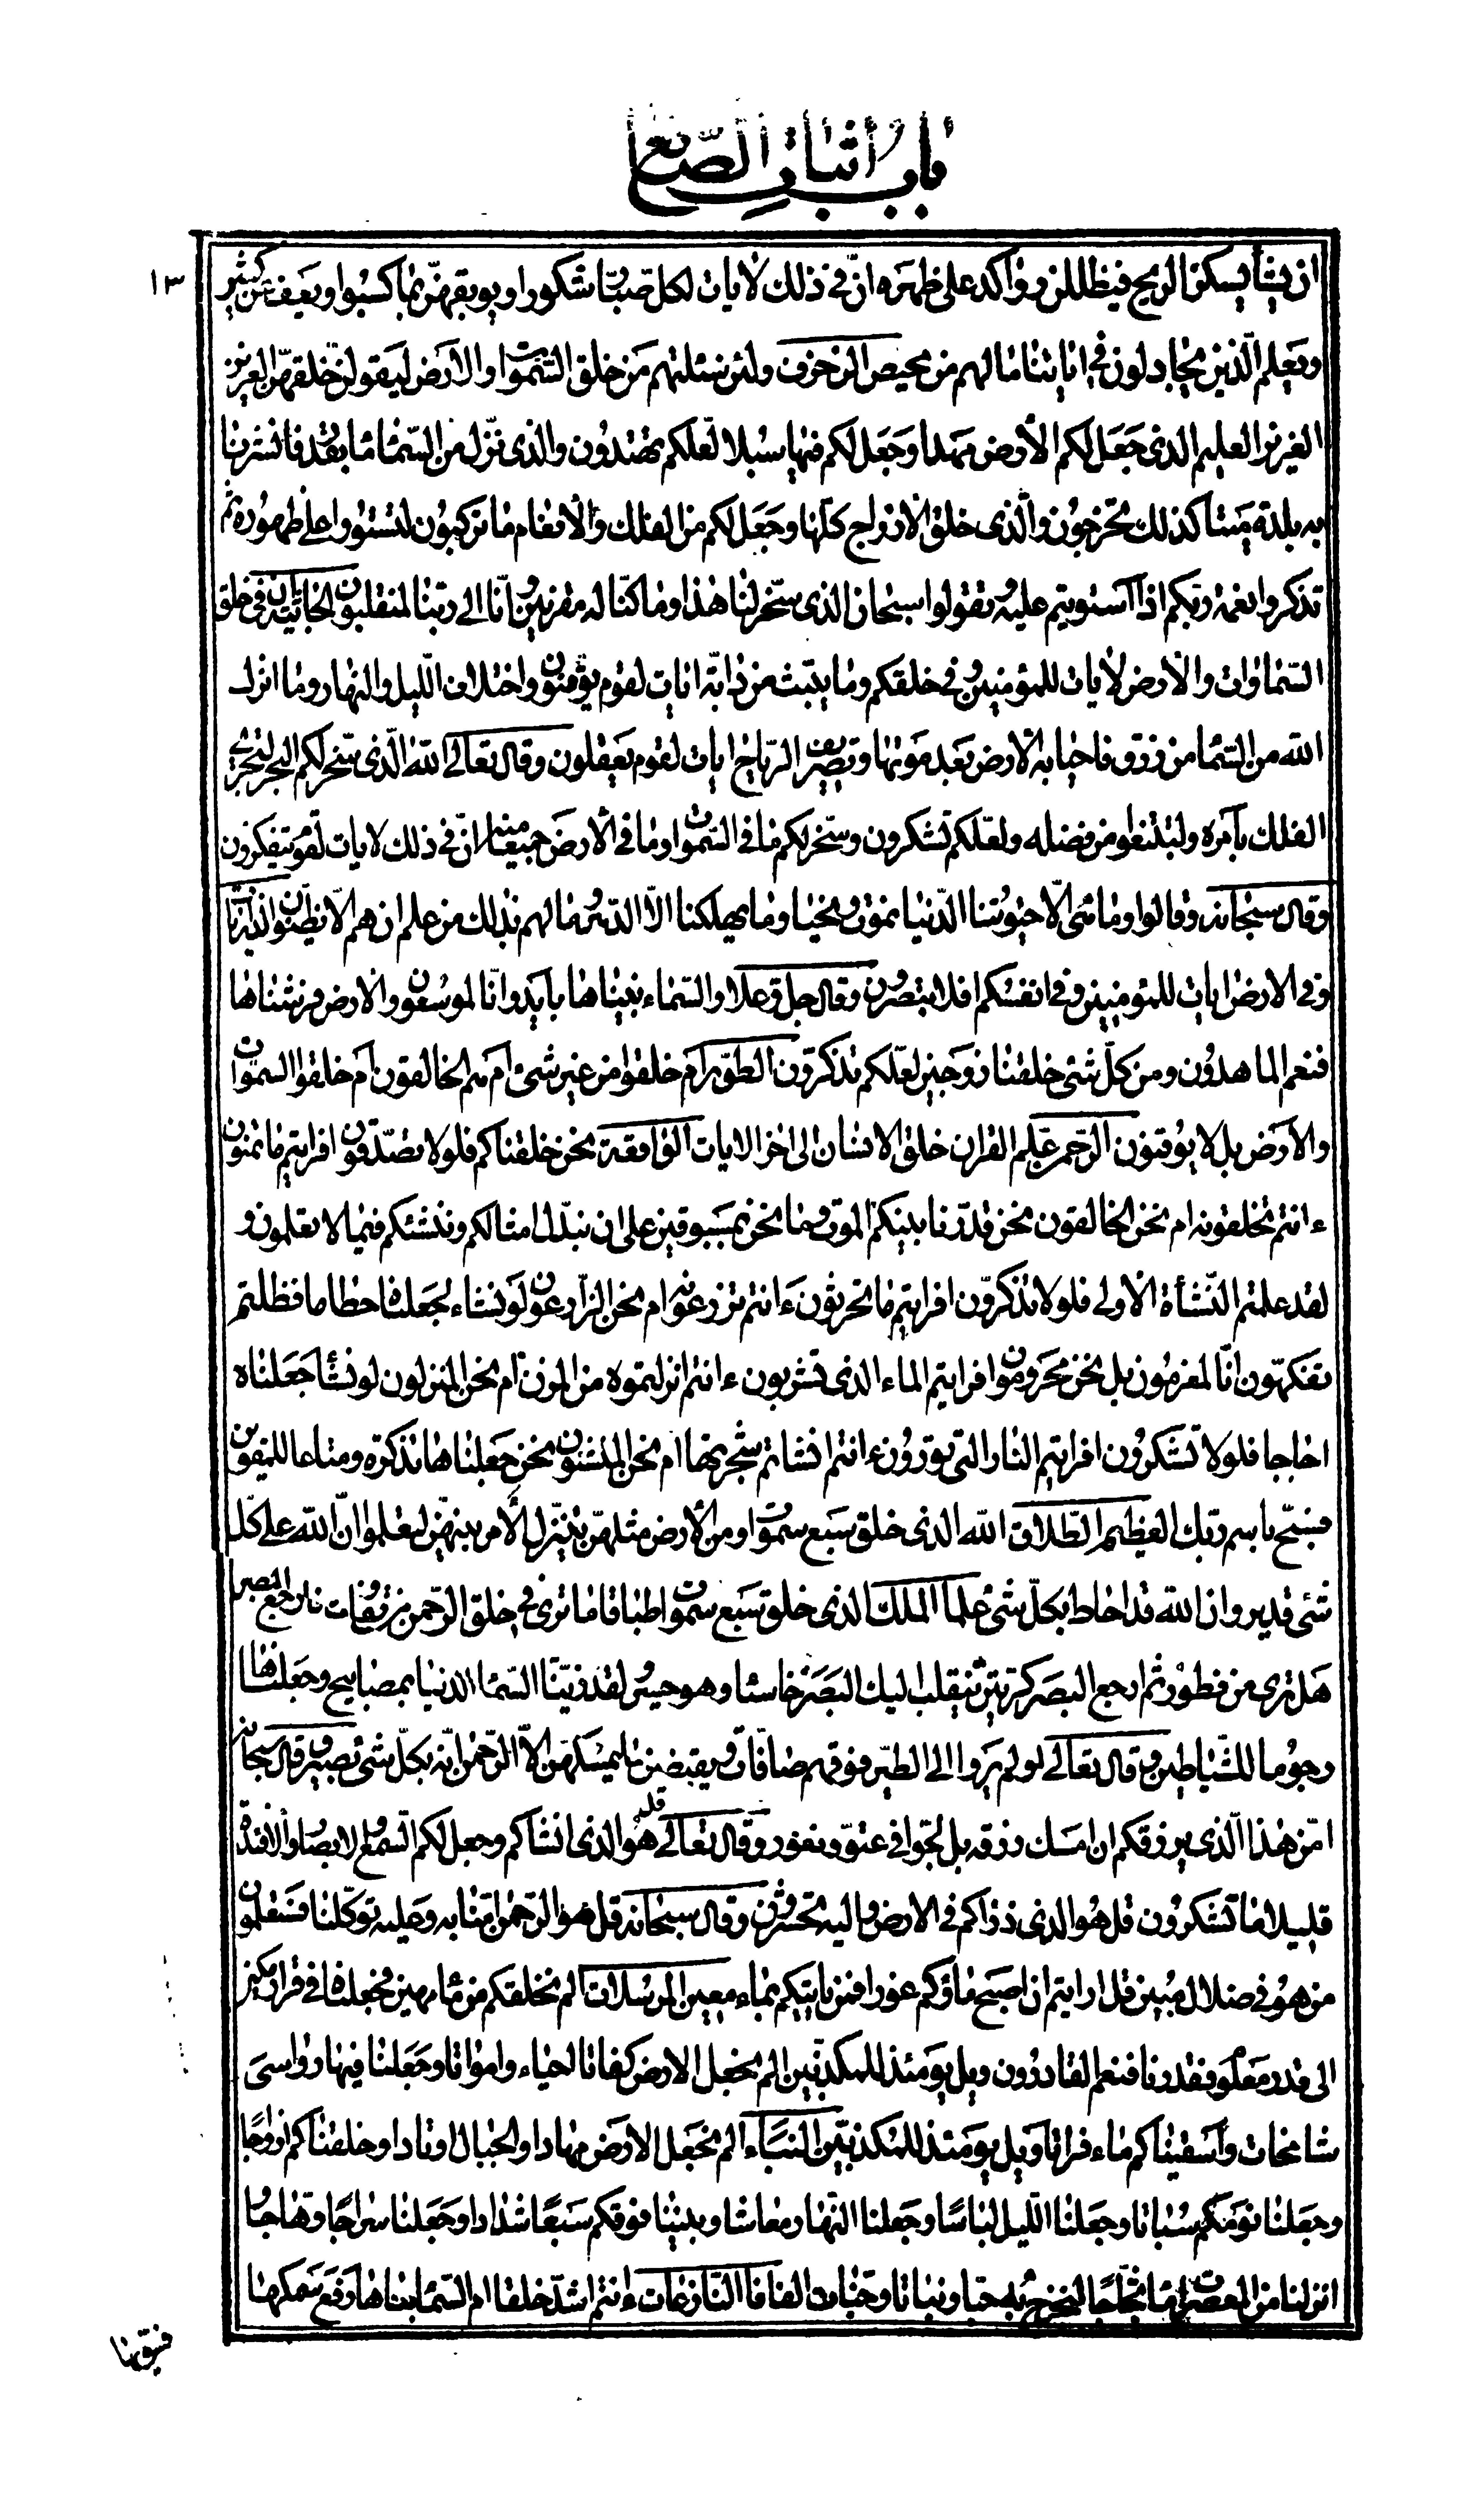 باب اثبات الصّانع
١٣
ان يشأ يسكن الريح فيظللن رواكد على ظهره انّ في ذلك لايات لكل صبّار شكور او يوبقهنّ بما كسبوا ويعف عن كثير
ويعلم الّذين يجادلون في اياتنا ما لهم من محيص الزخرف ولئن سئلتهم من خلق السّموات والارض ليقولنّ خلقهنّ العزيز
العزيز العليم الذي جعل لكم الأرض مهدا وجعل لكم فيها سبلا لعّلكم تهتدون والذي نزّل من السّماء ماء بقدر فانشرنا
به بلدة ميتا كذلك تخرجون والّذي خلق الازواج كلّها وجعل لكم من الفلك والأنعام ما تركبون لتستووا على ظهوره ثم
تذكروا نعمة ربكم اذا استويتم عليه وتقولوا سبحان الذي سخّر لنا هذا وما كنّا له مقرنين وانّا الى ربّنا لمنقلبون الجاثية ان في خلق
السّماوات والأرض لأيات للمؤمنين وفي خلقكم وما يبثّ من دابّة ايات لقوم يوقنون واختلاف اللّيل والنهار وما انزل
الله من السّماء من رزق فاحيا به الأرض بعد موتها وتصريف الرّياح ايات لقوم يعقلون وقال تعالى الله الّذي سخّر لكم البحر لتجري
الفلك بأمره ولتبتغوا من فضله ولعّلكم تشكرون وسخّر لكم ما في السّموات وما في الأرض جميعا منه انّ في ذلك لايات لقوم يتفكرون
وقال سبحانه وقالوا وما هي الّا حيوتنا الدّنيا نموت ونحيا وما يهلكنا الّا الدّهر وما لهم بذلك من علم ان هم الّا يظنّون الذاريات
وفي الارض ايات للموقنين وفي انفسكم افلا تبصرون وقال جل وعلا والسّماء بنيناها بايد وانّا لموسعون والارض فرشناها
فنعم الماهدون ومن كلّ شئ خلقنا زوجين لعّلكم تذكّرون الطور ام خلقوا من غير شئ ام هم الخالقون ام خلقوا السموات
والأرض بل لا يوقنون الرّحمن علّم القران خلق الانسان الى اخر الايات الواقعة نحن خلقناكم فلولا تصدّقون افرايتم ما تمنون
ءانتم تخلقونه ام نحن الخالقون نحن قدّرنا بينكم الموت وما نحن بمسبوقين على ان نبدّل امثالكم وننشئكم فيما لا تعلمون و
لقد علمتم النّشأة الأولى فلولا تذكّرون افرايتم ما تحرثون ءانتم تزرعونه ام نحن الزّارعون لو نشاء لجعلناه حطاما فظلتم
تفكّهون انّا لمغرمون بل نحن محرومون افرايتم الماء الذي تشربون ءانتم انزلتموه من المزن ام نحن المنزلون لو نشأ جعلناه
اجاجا فلولا تشكرون افرايتم النار التي تورون ءانتم انشاتم شجرتها ام نحن المنشئون نحن جعلناها تذكرة ومتاعا للمقوين
فسبّح باسم ربك العظيم الطّلاق الله الذي خلق سبع سموات ومن الأرض مثلهنّ يتنزّل الأمر بينهنّ لتعلموا انّ الله على كلّ
شئ قدير وان الله قد احاط بكلّ شئ علما الملك الذي خلق سبع سموات طباقا ما ترى في خلق الرّحمن من تفاوت فارجع البصر
هل ترى من فطور ثم ارجع البصر كرتين ينقلب اليك البصر خاسئا وهو حسير ولقد زيّنّا السّماء الدنيا بمصابيح وجعلناها
رجوما للشّياطين وقال تعالى اولم يروا الى الطّير فوقهم صافّات ويقبضن ما يمسكهنّ الّا الرّحمن انّه بكلّ شئ بصير وقال سبحانه
امّن هذا الّذي يرزقكم ان امسك رزقه بل لجّوا في عتوّ ونفور وقال تعالى قل هو الذي انشاكم وجعل لكم السّمع والابصار والافئدة
قليلا ما تشكرون قل هو الذي ذراكم في الارض واليه تحشرون وقال سبحانه قل هو الرّحمن امنّا به وعليه توكّلنا فستعلمون
من هو في ضلال مبين قل ارايتم ان اصبح ماؤكم غورا فمن ياتيكم بماء معين المرسلات الم نخلقكم من ماء مهين فجعلناه في قرار مكين
الى قدر معلوم فقدرنا فنعم القادرون ويل يومئذ للمكذّبين الم نجعل الارض كفاتا احياء وامواتا وجعلنا فيها رواسي
شامخات وأسقيناكم ماء فراتا ويل يومئذ للمكذبين النبأ الم نجعل الارض مهادا والجبال اوتادا وخلقناكم ازواجا
وجعلنا نومكم سباتا وجعلنا اللّيل لباسا وجعلنا النّهار معاشا وبنينا فوقكم سبعا شدادا وجعلنا سراجا وهاجا و
انزلنا من المعصرات ماء ثجّاجا لنخرج به حبا ونباتا وجنات الفافا النّازعات ءانتم اشدّ خلقا ام السّماء بناها رفع سمكها
فسوّيها